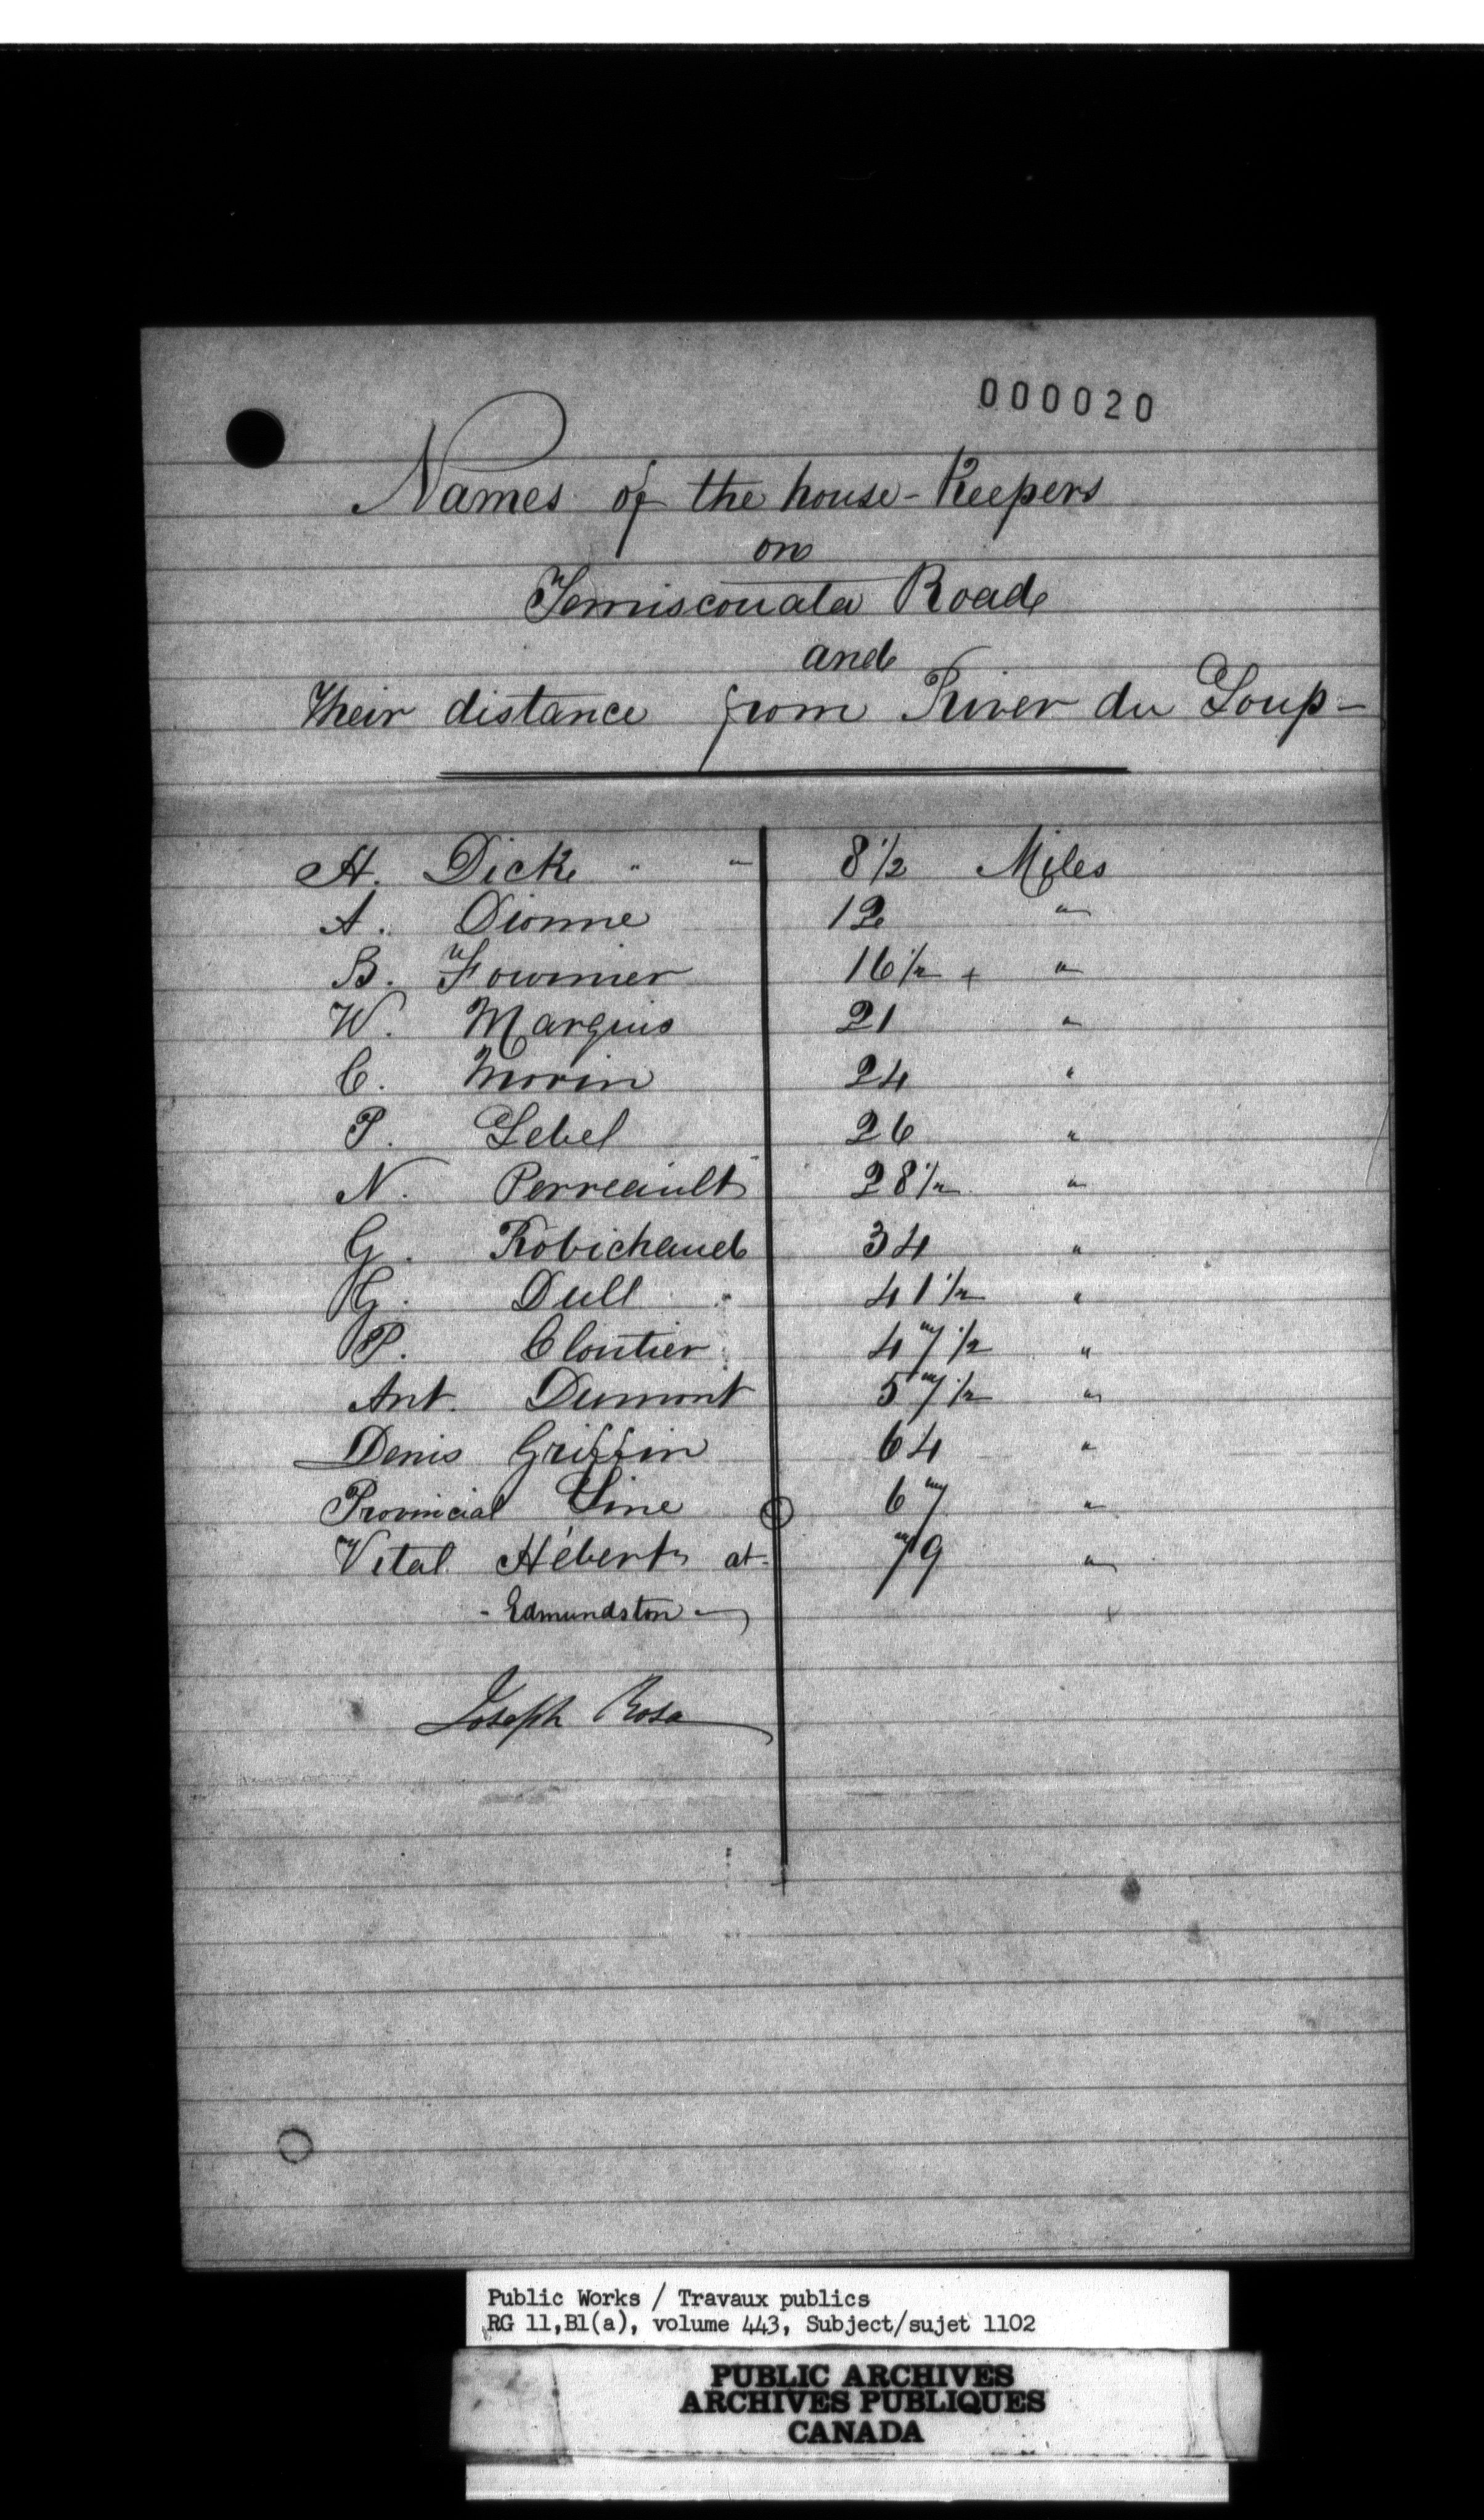 000020
Names of the house-Keepers
on
Temiscouata Road
and
Their distance from River du Loup-
A. Dick " " 8 1/2 Miles
A. Dionne 12 "
B. Fournier 16 1/2 + "
W. Marquis 21 "
C. Morin 24 "
P. Lebel 26 "
N. Perreault 28 1/2 "
G. Robichaud 34 "
G. Dull 41 1/2 "
P. Cloutier 47 1/2 "
Ant. Dumont 57 1/2 "
Denis Griffin 64 "
Provincial Line 67 "
Vital Hébert at 79 "
- Edmundston -
Joseph Rosa
Public Works / Travaux publics
RG 11,B1(a), volume 443, Subject/sujet 1102
PUBLIC ARCHIVES
ARCHIVES PUBLIQUES
CANADA